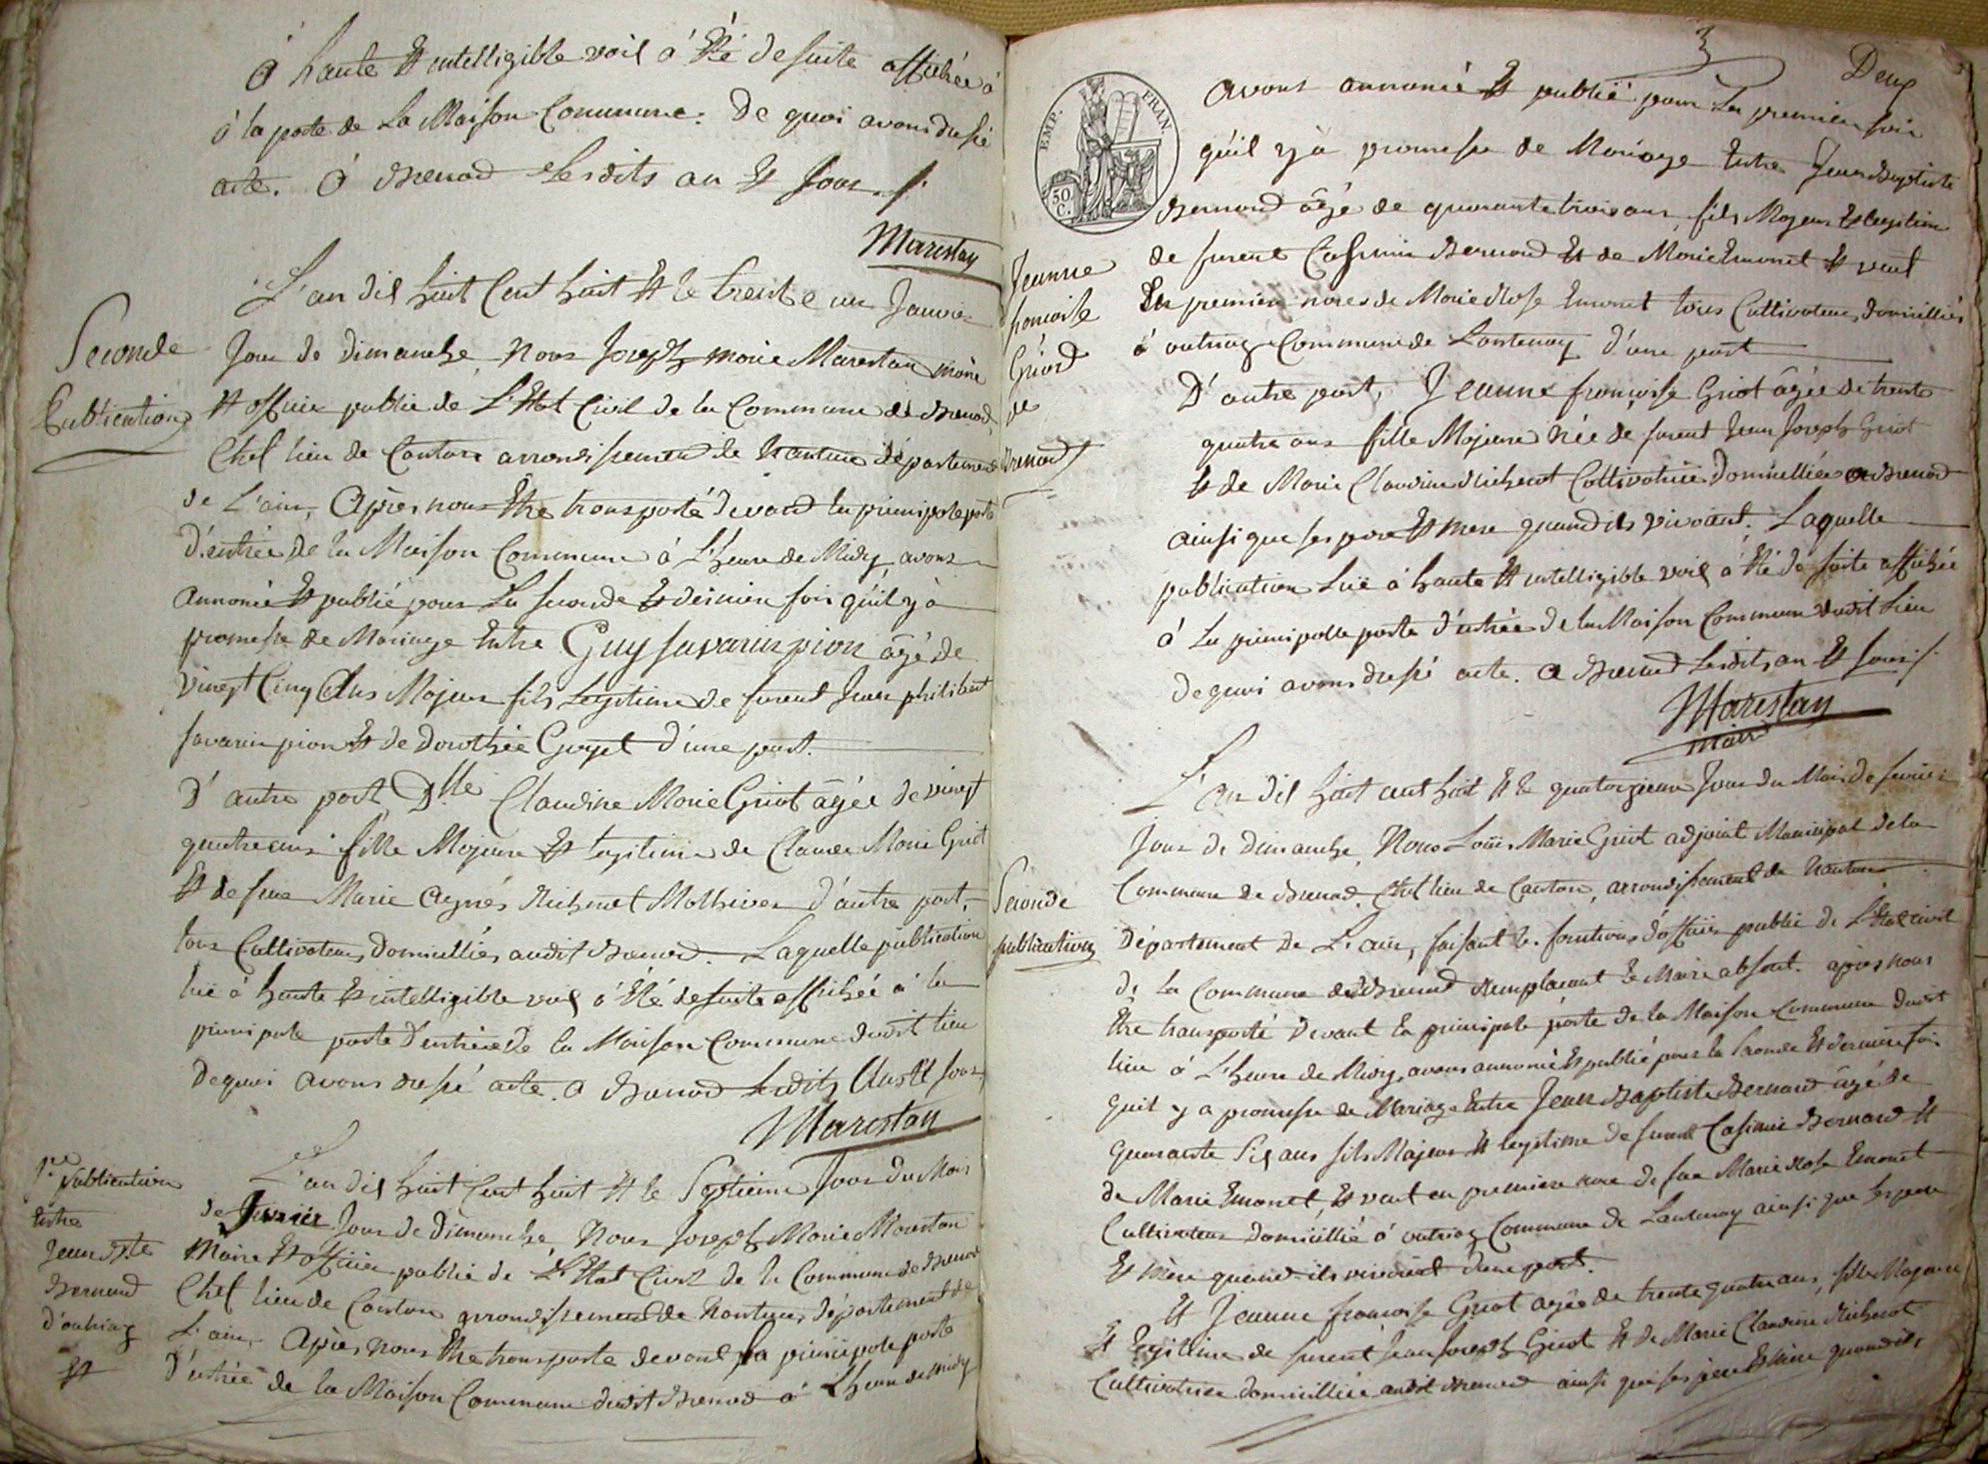 à haute et intelligible voix à été de suite affichée à
à la porte de la Maison Commune. De quoi avons dressé
acte. à Brenod lesdits an et jour ./.
Marestan
Seconde
Publication
L'an dix huit Cent huit et le trente un Janvier
Jour de dimanche, Nous Joseph Marie Marestan maire
et officier public de L'Etat Civil de la Commune de Brenod,
Chef lieu de Canton arrondissement de Nantua département
de L'ain, Après nous être transporté devant la principale porte
D'entrée de la Maison Commune à L'heure de Midy, avons
annoncé et publié pour la seconde et dernière fois qu'il y à
promesse de Mariage Entre Guy savarin pion âgé de
vingt Cinq Ans Majeur fils Legitime de furent Jean philibert
savarin pion et de Dorothée Goyet d'une part.
D'autre part Dlle Claudine Marie Griot âgée de vingt
quatre ans fille Majeure et legitime de Claude Marie Griot
et de feue Marie Agnés Richerot Mathieu d'autre part,
tous Cultivateurs domiciliés audit Brenod. Laquelle publication
lue à haute et intelligible voix à été de suite affichée à la
principale porte D'entrée De la Maison Commune dudit lieu
De quoi avons dressé acte. a Brenod lesdits Ans et jour
Marestan
1re publication
Entre
Jean Bte
Bernard
d'outriaz
et
L'an dix huit Cent huit et le Septieme Jour du Mois
de Fevrier Jour de Dimanche, Nous Joseph Marie Marestan
Maire et officier public de L'Etat Civil de la Commune de Brenod
Chef lieu de Canton arrondissement de Nantua, département de
L'ain, Après Nous être transporté devant la principale porte
D'entrée de la Maison Commune dudit Brenod à L'heure de midy
3
Deux
EMP. FRAN.
50 C.
Jeanne
francoise
Griod
de
Brenod
avons annoncé et publié pour la premiere fois
qu'il y à promesse de Mariage Entre Jean Baptiste
Bernard âgé de quarante trois ans fils Majeur et legitime
de furent Casimir Bernard et de Marie Emonet et veuf
En premiere noces de Marie Rose Emonet tous Cultivateurs domiciliés
à outriaz Commune de Lantenay d'une part
D'autre part, Jeanne françoise Griot âgée de trente
quatre ans fille Majeure Née de furent Jean Joseph Griot
et de Marie Claudine Richerot Cultivatrice Domiciliée a Brenod
ainsi que ses pere et mere quand ils vivoient. Laquelle
publication Luë à haute et intelligible voix à été de suite affichée
à la principalle porte d'entrée de la Maison Commune dudit Lieu
De quoi avons dressé acte. a Brenod Lesdits an et jour ./.
Marestan
maire
Seconde
publication
L'an dix huit cent huit et le quatorzieme Jour du Mois de fevrier
Jour de Dimanche, Nous Loüis Marie Griot adjoint Municipal de la
Commune de Brenod, Chef lieu de Canton, arrondissement de Nantua
Département De L'ain, faisant les fonctions d'officier public de L'Etat civil
de la Commune de Brenod Remplacant le Maire absent. après nous
être transporté Devant la principale porte de la Maison Commune dudit
lieu à L'heure de Midy, avons annoncé et publié pour la seconde et derniere fois
quil y a promesse de Mariage Entre Jean Baptiste Bernard âgé de
quarante Six ans fils Majeur et legitime de furent Casimir Bernard et
de Marie Emonet, et veuf en premiere noce de feue Marie Rose Emonet
Cultivateur domicillié à outriaz Commune de Lantenay ainsi que ses pere
et mère quand ils vivoient d'une part.
et Jeanne francoise Griot agée de trente quatre ans, fille Majeure
et legitime de furent Jean Joseph Griot et de Marie Claudine Richerot
Cultivatrice domicilliée audit Brenod ainsi que ses père et mère quand ils